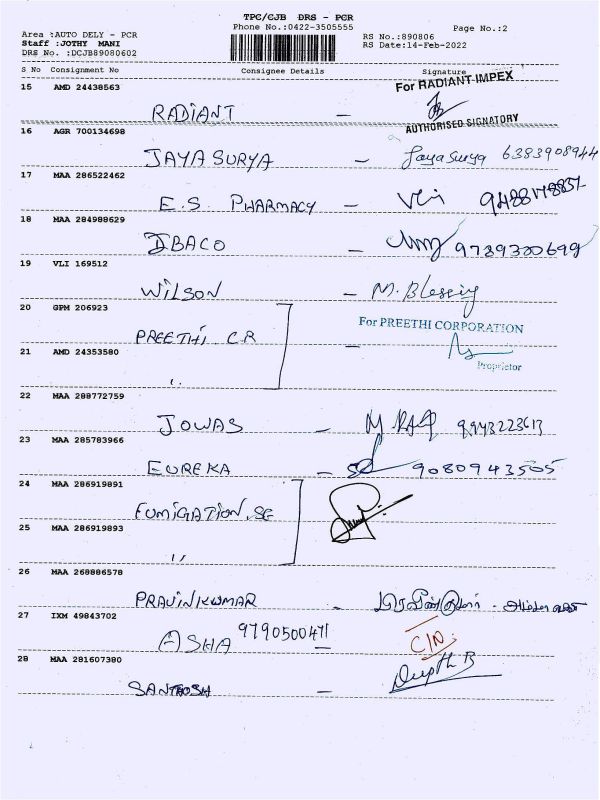 TPC/CJB DRS - PCR
Phone No.:0422-3505555
Page No.:2
Area :AUTO DELY - PCR
Staff :JOTHY MANI
DRS No. :DCJB89080602
RS No.:890806
RS Date:14-Feb-2022
S No Consignment No Consignee Details Signature
15 AMD 24438563
For RADIANT IMPEX
RADIANT -
AUTHORISED SIGNATORY
16 AGR 700134698
JAYA SURYA - Jaya Surya 6383908944
17 MAA 286522462
E.S. PHARMACY -
18 MAA 284988629
IBACO -
19 VLI 169512
WILSON - M. Blessing
20 GPM 206923
PREETHI. C.R -
For PREETHI CORPORATION
21 AMD 24353580
Proprietor
"
22 MAA 288772759
JOWAS -
23 MAA 285783966
EUREKA - 9080943505
24 MAA 286919891
FUMIGATION. SE
25 MAA 286919893
"
26 MAA 268886578
PRAVINKUMAR -
27 IXM 49843702
ASHA 9790500471 -
28 MAA 281607380
SANTHOSH - Deepth B